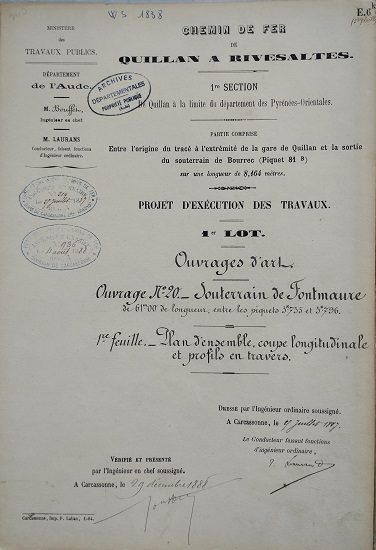 W S 1838
E.6k
MINISTÈRE
des
TRAVAUX PUBLICS.
DÉPARTEMENT
de l'Aude.
M. Bouffet,
Ingénieur en chef
M. LAURANS
Conducteur, faisant fonctions
d'ingénieur ordinaire.
CHEMIN DE FER
DE
QUILLAN A RIVESALTES.
1re SECTION
De Quillan à la limite du département des Pyrénées-Orientales.
ARCHIVES
DÉPARTEMENTALES
PROPRIÉTÉ PUBLIQUE
(Aude)
PARTIE COMPRISE
Entre l'origine du tracé à l'extrémité de la gare de Quillan et la sortie
du souterrain de Bourrec (Piquet 81 B)
sur une longueur de 8,164 mètres.
PROJET D'EXÉCUTION DES TRAVAUX.
1er LOT.
Ouvrages d'art.
Ouvrage No 20.- Souterrain de Fontmaure
de 61m00 de longueur, entre les piquets 5k735 et 5k796.
1re feuille.- Plan d'ensemble, coupe longitudinale
et profils en travers.
DRESSÉ par l'Ingénieur ordinaire soussigné.
A Carcassonne, le 27 juillet 1887.
Le Conducteur faisant fonctions
d'ingénieur ordinaire,
VÉRIFIÉ ET PRÉSENTÉ
par l'Ingénieur en chef soussigné.
A Carcassonne, le 29 décembre 1888
Carcassonne, Imp. P. Labau,